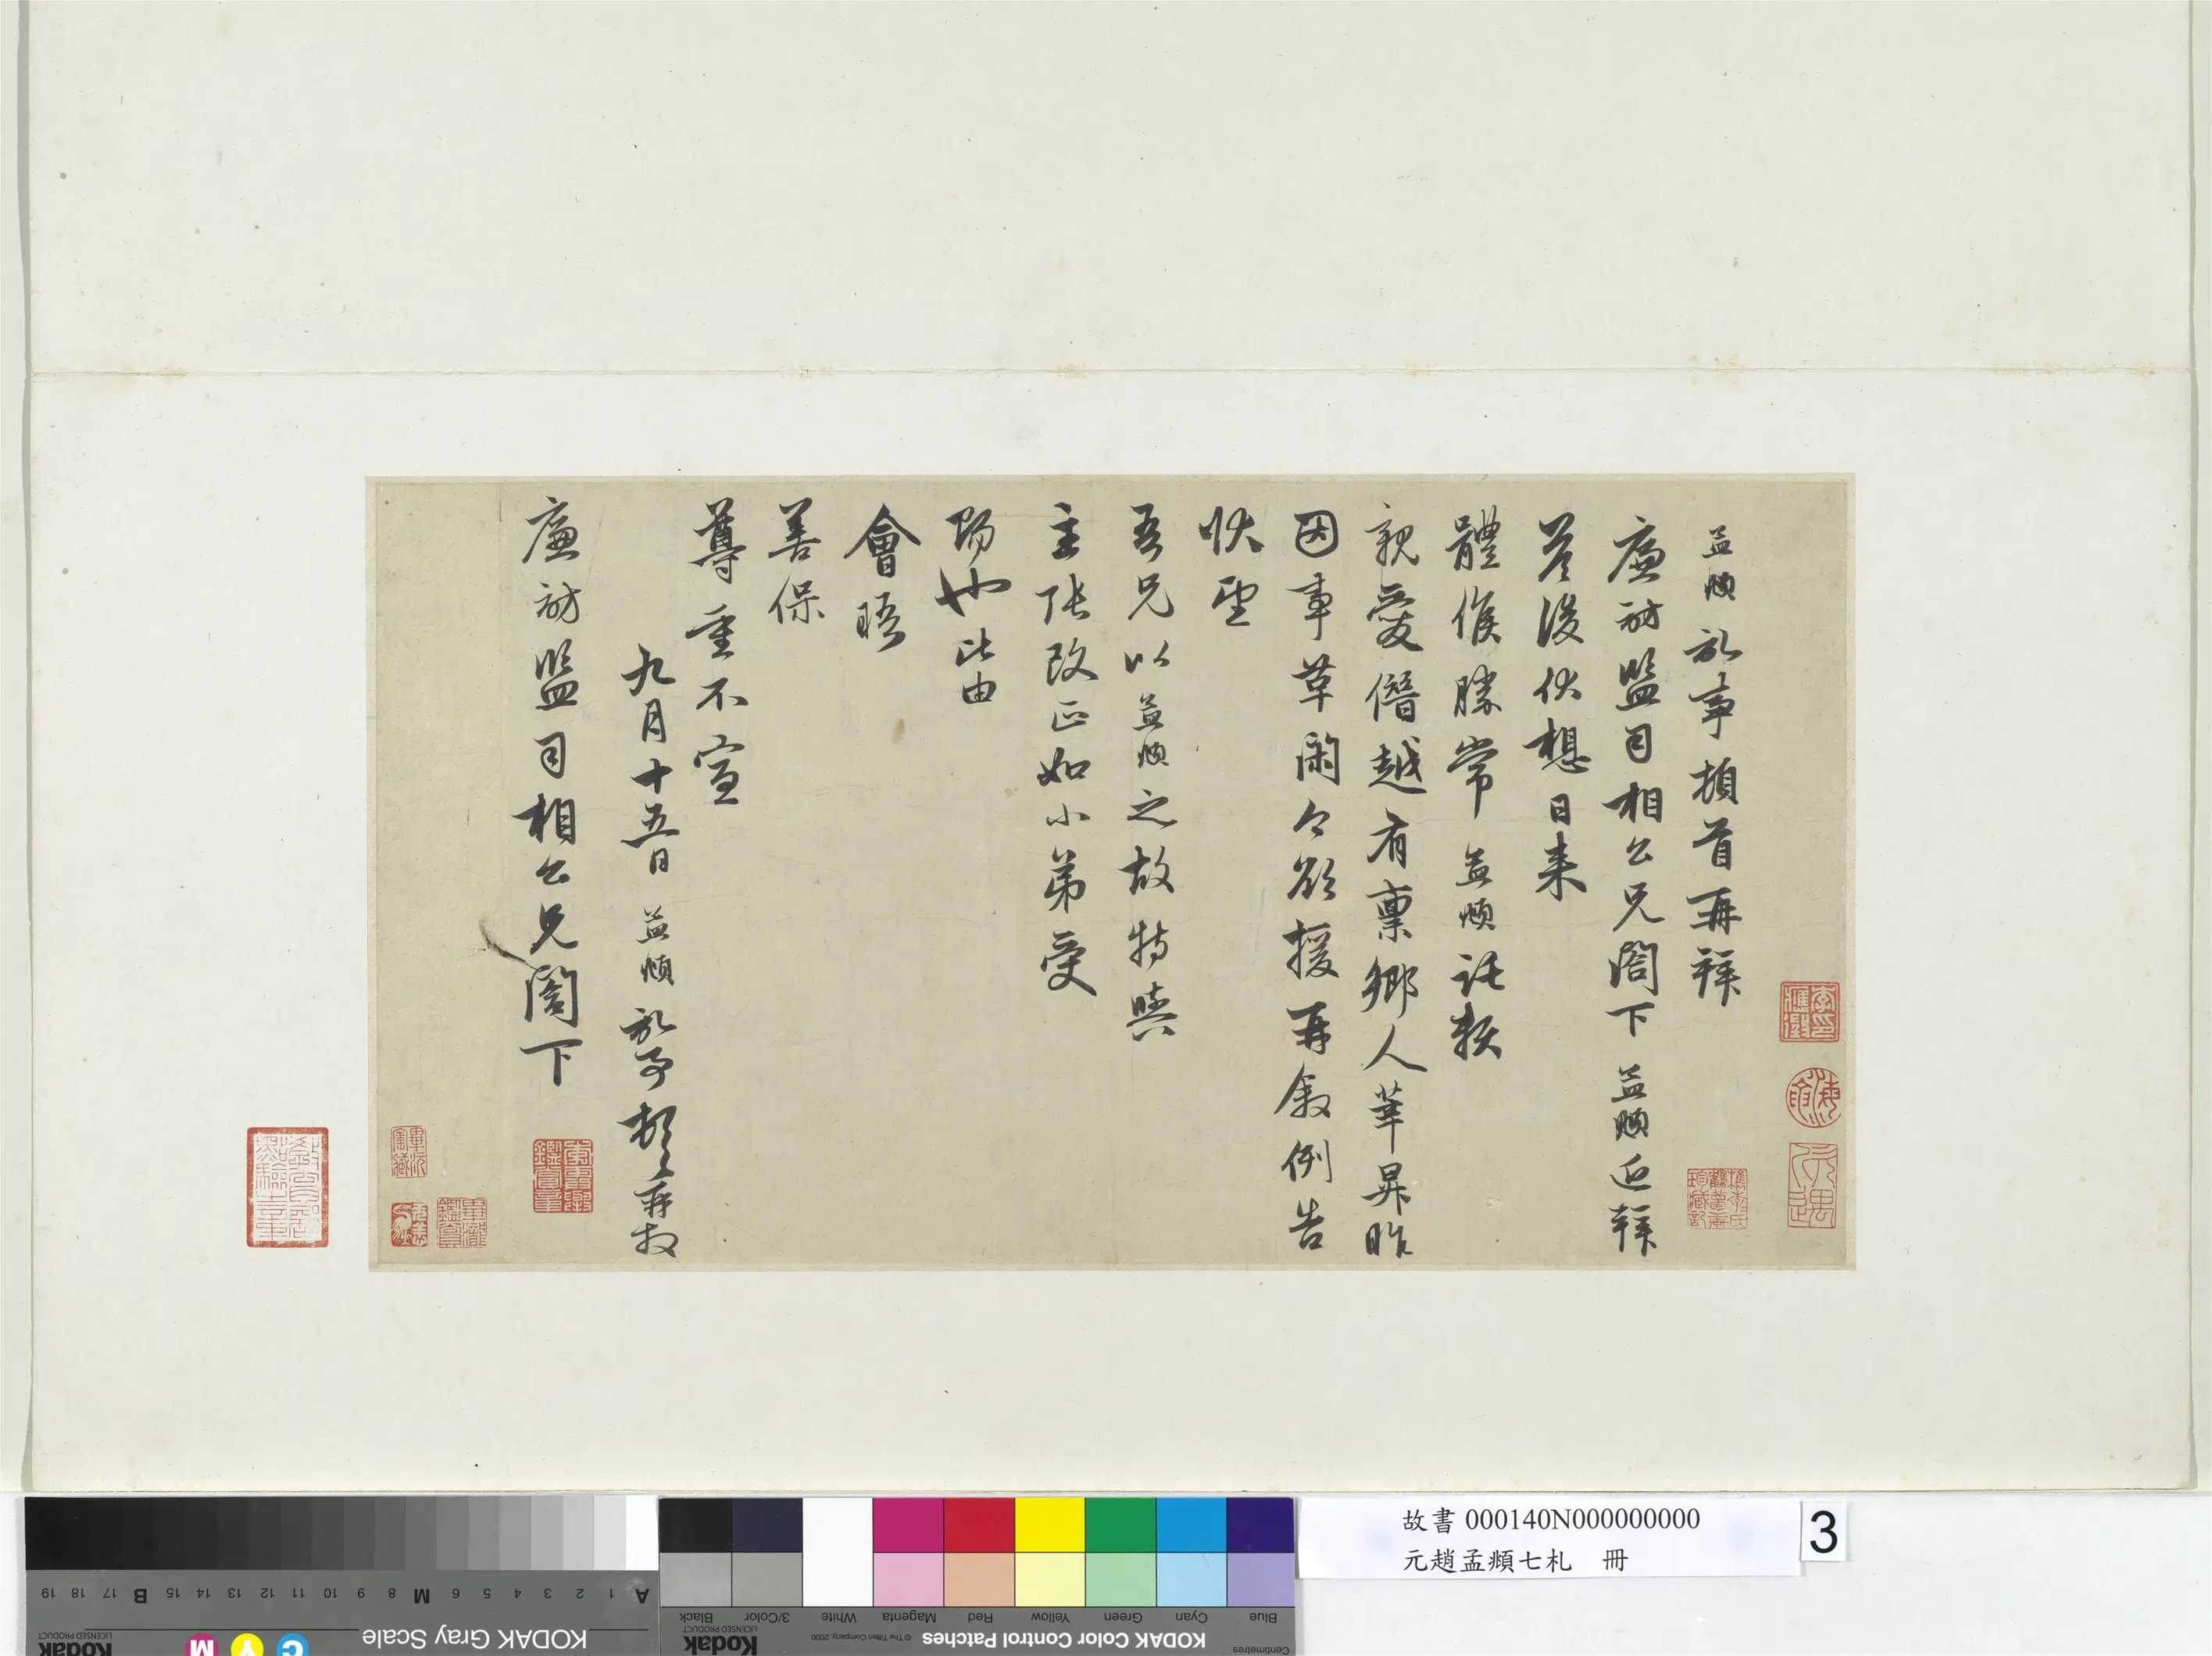 孟頫記事頓首再拜
廉訪監司相公兄閣下孟頫近拜
答後伏想日來
體候勝常孟頫託賴
親愛僭越有稟鄉人華昇昨
因事革閑今欲援再敘例告
狀望
吾兄以孟頫之故特與
主張改正如小弟受
賜也比由
會晤
善保
尊重不宣
九月十五日孟頫記事頓首再拜
廉訪監司相公兄閣下
故書 000140N000000000
元趙孟頫七札 冊
3
KODAK Gray Scale
LICENSED PRODUCT
Kodak
A 1 2 3 4 5 6 M 8 9 10 11 12 13 14 15 B 17 18 19
C Y M
KODAK Color Control Patches
© The Tiffen Company, 2000
LICENSED PRODUCT
Kodak
Centimetres
Blue Cyan Green Yellow Red Magenta White 3/Color Black